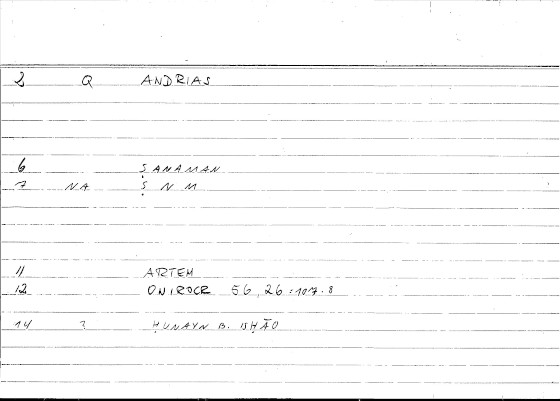 2 Q ANDRIAS
6 ṢANAMAN
7 NA Ṣ N M
11 ARTEM
12 ONIROCR 56,26:107.8
14 ? ḤUNAYN B. ISḤĀQ